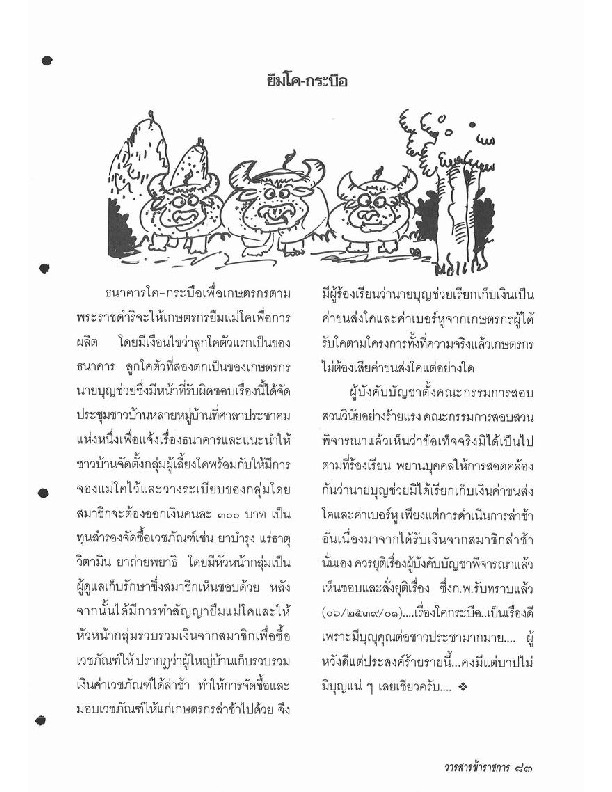 ยืมโค-กระบือ
ธนาคารโค-กระบือเพื่อเกษตรกรตาม
พระราชดำริจะให้เกษตรกรยืมแม่โคเพื่อการ
ผลิต โดยมีเงื่อนไขว่าลูกโคตัวแรกเป็นของ
ธนาคาร ลูกโคตัวที่สองตกเป็นของเกษตรกร
นายบุญช่วยซึ่งมีหน้าที่รับผิดชอบเรื่องนี้ได้จัด
ประชุมชาวบ้านหลายหมู่บ้านที่ศาลาประชาคม
แห่งหนึ่งเพื่อแจ้งเรื่องธนาคารและแนะนำให้
ชาวบ้านจัดตั้งกลุ่มผู้เลี้ยงโคพร้อมกับให้มีการ
จองแม่โคไว้และวางระเบียบของกลุ่มโดย
สมาชิกจะต้องออกเงินคนละ ๓๐๐ บาท เป็น
ทุนสำรองจัดซื้อเวชภัณฑ์เช่น ยาบำรุง แร่ธาตุ
วิตามิน ยาถ่ายพยาธิ โดยมีหัวหน้ากลุ่มเป็น
ผู้ดูแลเก็บรักษาซึ่งสมาชิกเห็นชอบด้วย หลัง
จากนั้นได้มีการทำสัญญายืมแม่โคและให้
หัวหน้ากลุ่มรวบรวมเงินจากสมาชิกเพื่อซื้อ
เวชภัณฑ์ให้ ปรากฏว่าผู้ใหญ่บ้านเก็บรวบรวม
เงินค่าเวชภัณฑ์ได้ล่าช้า ทำให้การจัดซื้อและ
มอบเวชภัณฑ์ให้แก่เกษตรกรล่าช้าไปด้วย จึง
มีผู้ร้องเรียนว่านายบุญช่วยเรียกเก็บเงินเป็น
ค่าขนส่งโคและค่าเบอร์หูจากเกษตรกรผู้ได้
รับโคตามโครงการทั้งที่ความจริงแล้วเกษตรกร
ไม่ต้องเสียค่าขนส่งโคแต่อย่างใด
ผู้บังคับบัญชาตั้งคณะกรรมการสอบ
สวนวินัยอย่างร้ายแรง คณะกรรมการสอบสวน
พิจารณาแล้วเห็นว่าข้อเท็จจริงมิได้เป็นไป
ตามที่ร้องเรียน พยานบุคคลให้การสอดคล้อง
กันว่านายบุญช่วยมิได้เรียกเก็บเงินค่าขนส่ง
โคและค่าเบอร์หู เพียงแต่การดำเนินการล่าช้า
อันเนื่องมาจากได้รับเงินจากสมาชิกล่าช้า
นั่นเอง ควรยุติเรื่องผู้บังคับบัญชาพิจารณาแล้ว
เห็นชอบและสั่งยุติเรื่อง ซึ่งก.พ.รับทราบแล้ว
(๐๖/๒๕๓๙/๐๑)....เรื่องโคกระบือ..เป็นเรื่องดี
เพราะมีบุญคุณต่อชาวประชามากมาย.... ผู้
หวังดีแต่ประสงค์ร้ายรายนี้...คงมีแต่บาปไม่
มีบุญแน่ ๆ เลยเชียวครับ.... ❖
วารสารข้าราชการ ๘๓